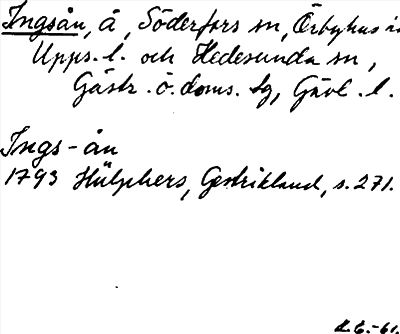 Ingsån, å, Söderfors sn, Örbyhus
Upps. l. och Hedesunda sn,
Gästr. ö. doms. tg, Gävl. l.
Ings-ån
1793 Hülphers, Gestrikland, s. 271.
-61.